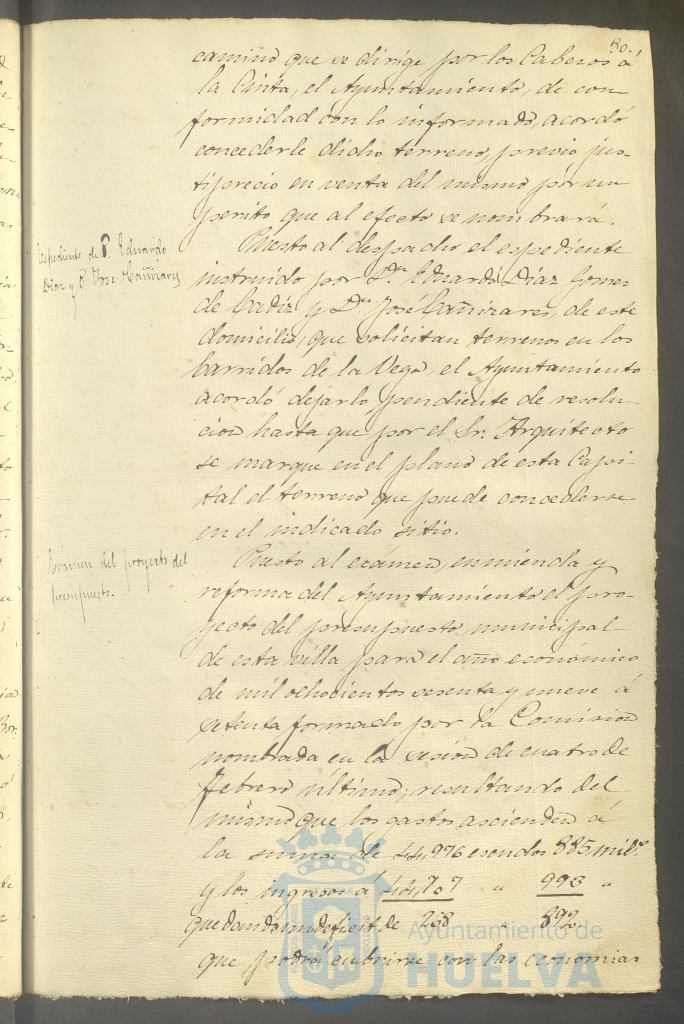 80.
camino que se dirige por los Cabezos á
la Cinta, el Ayuntamiento, de con-
formidad con lo informado, acordó
concederle dicho terreno, previo jus-
tiprecio en venta del mismo por un
perito que al efecto se nombrará.
Espediente de D. Eduardo
Diaz y D. Jose Cañizares
Puesto al despacho el espediente
instruido por Dn. Eduardo Diaz Gomez
de Cadiz y Dn. José Cañizares, de este
domicilio, que solicitan terrenos en los
barridos de la Vega, el Ayuntamiento
acordó dejarlo pendiente de resolu-
cion hasta que por el Sr. Arquitecto
se marque en el plano de esta Capi-
tal el terreno que puede concederse
en el indicado sitio.
Exámen del proyecto del
presupuesto.
Puesto al exámen, enmienda y
reforma del Ayuntamiento el pro-
yecto del presupuesto municipal
de esta villa para el año económico
de mil ochocientos sesenta y nueve á
setenta formado por la Comision
nombrada en la sesion de cuatro de
Febrero último, resultando del
mismo que los gastos ascienden á
la suma de 44,976 escudos 885 mils
y los ingresos á 44,707 " 993 "
quedando un deficit de 268 " 892
que podrá cubrirse con las economias
Ayuntamiento de
HUELVA